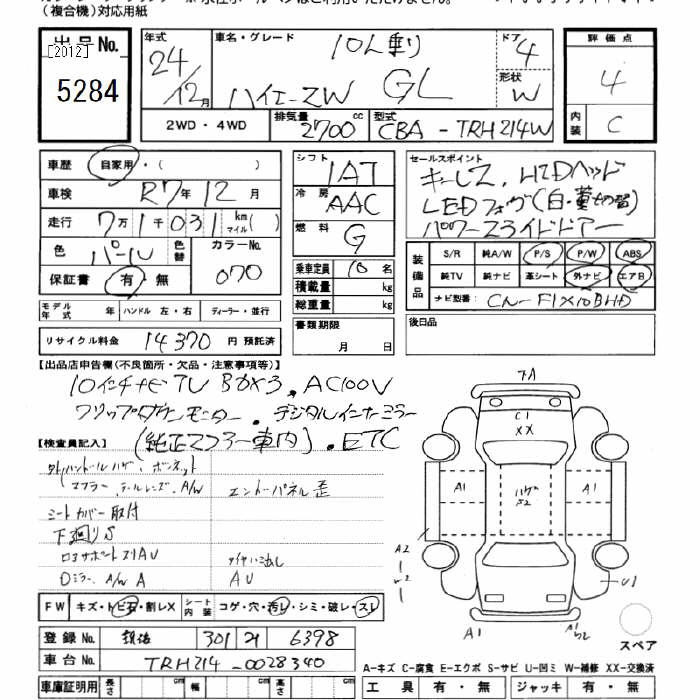 (複合機)対応用紙
出品No.
[2012]
5284
年式 24/12月
車名・グレード 10人乗り
ハイエースW GL
ドア 4
形状 W
2WD・4WD 排気量 2700cc 型式 CBA-TRH214W
評価点 4
内装 C
車歴 自家用・( )
車検 R7年12月
走行 7万1千031 km マイル( )
色 パール 色替 カラーNo. 070
保証書 有・無
モデル年式 年 ハンドル 左・右 ディーラー・並行
リサイクル料金 14370円 預託済
シフト 1AT
冷房 AAC
燃料 G
乗車定員 10名
積載量 kg
総重量 kg
書類期限 月 日
セールスポイント
キーレス、HIDヘッド
LEDフォグ(白・黄切替)
パワースライドドアー
装備品 S/R 純A/W P/S P/W ABS
純TV 純ナビ 革シート 外ナビ エアB
ナビ型番: CN-F1X10BHD
後日品
【出品店申告欄(不良箇所・欠品・注意事項等)】
10インチナビTV Bカメラ、AC100V
フリップダウンモニター・デジタルインナーミラー
(純正マフラー車内)・ETC
【検査員記入】
マフラー、テールレンズ、A/W
エントーパネル歪
シートカバー取付
下廻りS
ロアサポートスリAU
Dミラー、A/W A
AU
FW キズ・トビ石・割レX シート内装 コゲ・穴・汚レ・シミ・破レ・スレ
登録No. 301 6398
車台No. TRH214-0028340
車庫証明用 長さ cm 幅 cm 高さ cm
A1
C1
XX
A1
A1
A2
U1
A1
A1
スペア
A-キズ C-腐食 E-エクボ S-サビ U-凹ミ W-補修 XX-交換済
工具 有・無 ジャッキ 有・無